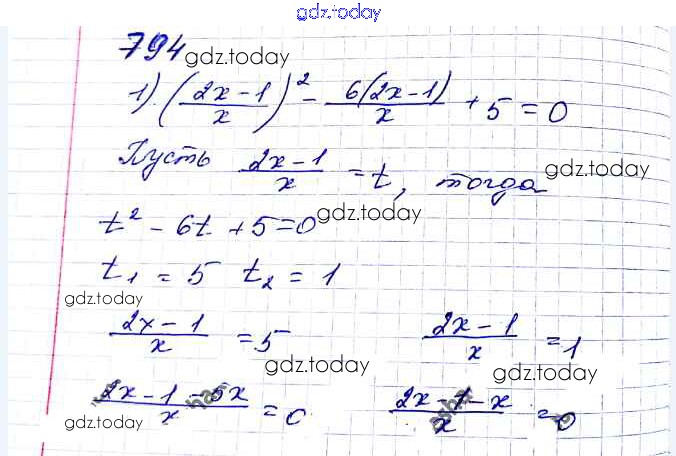 gdz.today
794 gdz.today
1) ((2x-1)/x)² - 6(2x-1)/x + 5 = 0
Пусть (2x-1)/x = t, тогда gdz.today
t² - 6t + 5 = 0 gdz.today
t₁ = 5 t₂ = 1
gdz.today
(2x-1)/x = 5 (2x-1)/x = 1
gdz.today gdz.today
(2x-1-5x)/x = 0 (2x-1-x)/x = 0
gdz.today